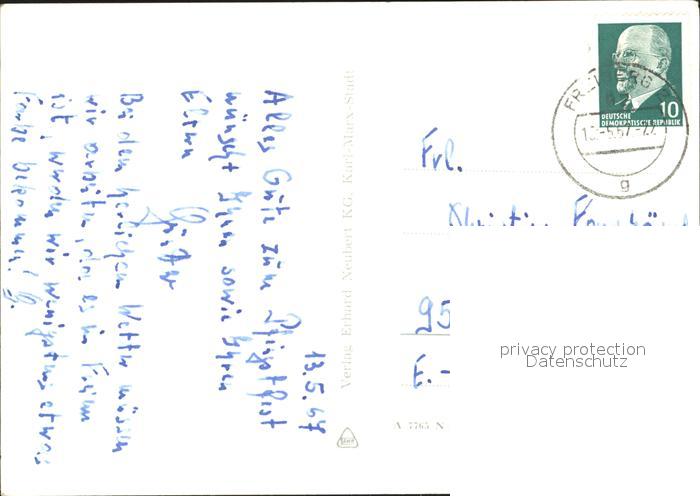 13.5.67
Alles Gute zum Pfingstfest
wünscht Ihnen sowie Ihren
Eltern
Günter
Bei dem herrlichen Wetter müssen
wir arbeiten, da es im Freien
ist, werden wir wenigstens etwas
Farbe bekommen! G.
Verlag Erhard Neubert KG, Karl-Marx-Stadt
A 7765 N
DEUTSCHE
DEMOKRATISCHE REPUBLIK
10
g
Frl.
95
E.-
privacy protection
Datenschutz